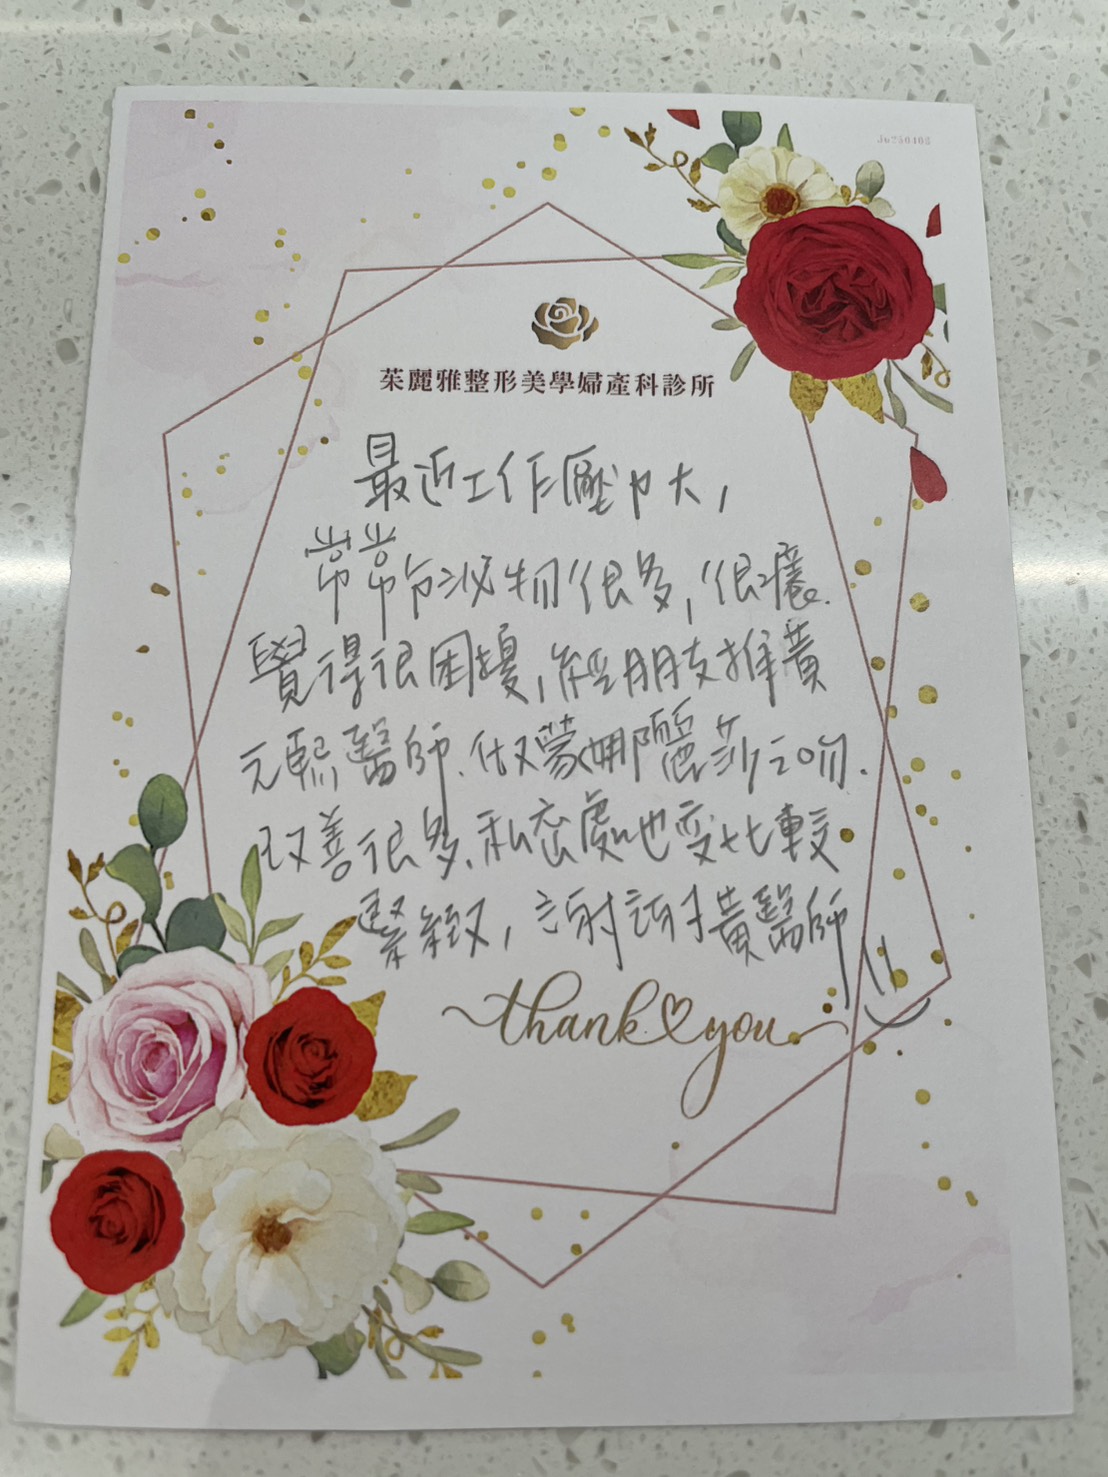 Ju250403
茱麗雅整形美學婦產科診所
最近工作壓力大,
常常分泌物很多,很癢.
覺得很困擾,經朋友推黃
元熙醫師.做蒙娜麗莎之吻.
改善很多,私密處也変比較
緊緻,謝謝黃醫師
thank you